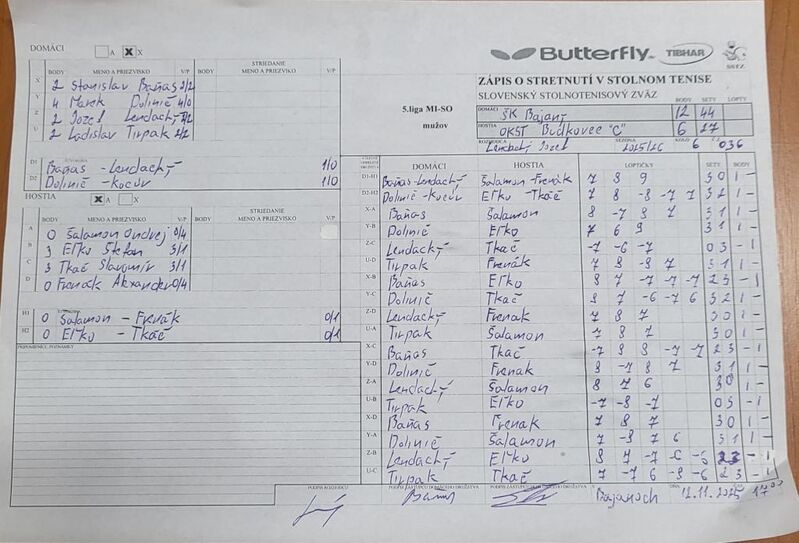 DOMÁCI A X
Butterfly TIBHAR SSTZ
BODY MENO A PRIEZVISKO V/P BODY STRIEDANIE MENO A PRIEZVISKO V/P
X 2 Stanislav Baňas 2/2
Y 4 Marek Dolinič 4/0
Z 2 Jozef Lendacký
U 2 Ladislav Tirpak 2/2
D1 Baňas - Lendacký 1/0
D2 Dolinič - Kocúr 1/0
ZÁPIS O STRETNUTÍ V STOLNOM TENISE
SLOVENSKÝ STOLNOTENISOVÝ ZVÄZ
5.liga MI-SO
mužov
BODY SETY LOPTY
DOMÁCI ŠK Bajany 12 44
HOSTIA OKST Budkovce "C" 6 27
ROZHODCA Lendacký Jozef SEZÓNA 2025/26 KOLO 6 Č. 036
HOSTIA A X
BODY MENO A PRIEZVISKO V/P BODY STRIEDANIE MENO A PRIEZVISKO V/P
A 0 Šalamon Ondrej 0/4
B 3 Eľko Štefan 3/1
C 3 Tkáč Slavomír 3/1
D 0 Frenák Alexander 0/4
H1 0 Šalamon - Frenák 0/1
H2 0 Eľko - Tkáč 0/1
PRIPOMIENKY, POZNÁMKY
DOMÁCI HOSTIA LOPTIČKY SETY BODY
D1-H1 Baňas-Lendacký Šalamon-Frenák 7 8 9 3 0 1 -
D2-H2 Dolinič-Kocúr Eľko - Tkáč 8 -8 -7 7 3 2 1 -
X-A Baňas Šalamon 8 -7 8 7 3 1 1 -
Y-B Dolinič Eľko 7 6 9 3 1 1 -
Z-C Lendacký Tkáč -7 -6 -7 0 3 - 1
U-D Tirpak Frenák 7 8 -8 7 3 1 1 -
X-B Baňas Eľko 8 7 -7 -7 -7 2 3 - 1
Y-C Dolinič Tkáč 8 7 -6 -7 6 3 2 1 -
Z-D Lendacký Frenak 7 8 7 3 0 1 -
U-A Tirpak Šalamon 7 8 7 3 0 1 -
X-C Baňas Tkáč -7 8 8 -7 -7 2 3 - 1
Y-D Dolinič Frenak 8 -7 8 7 3 1 1 -
Z-A Lendacký Šalamon 8 7 6 3 0 1 -
U-B Tirpak Eľko -7 -8 -7 0 3 - 1
X-D Baňas Frenak 7 8 7 3 0 1 -
Y-A Dolinič Šalamon 7 -8 7 6 3 1 1 -
Z-B Lendacký Eľko 8 7 -7 -6 2 3 - 1
U-C Tirpak Tkáč 7 -7 6 -8 -6 2 3 - 1
PODPIS ROZHODCU PODPIS ZÁSTUPCU DOMÁCEHO DRUŽSTVA PODPIS ZÁSTUPCU HOSŤUJÚCEHO DRUŽSTVA
Bajanoch 12.11.2025 17⁰⁰